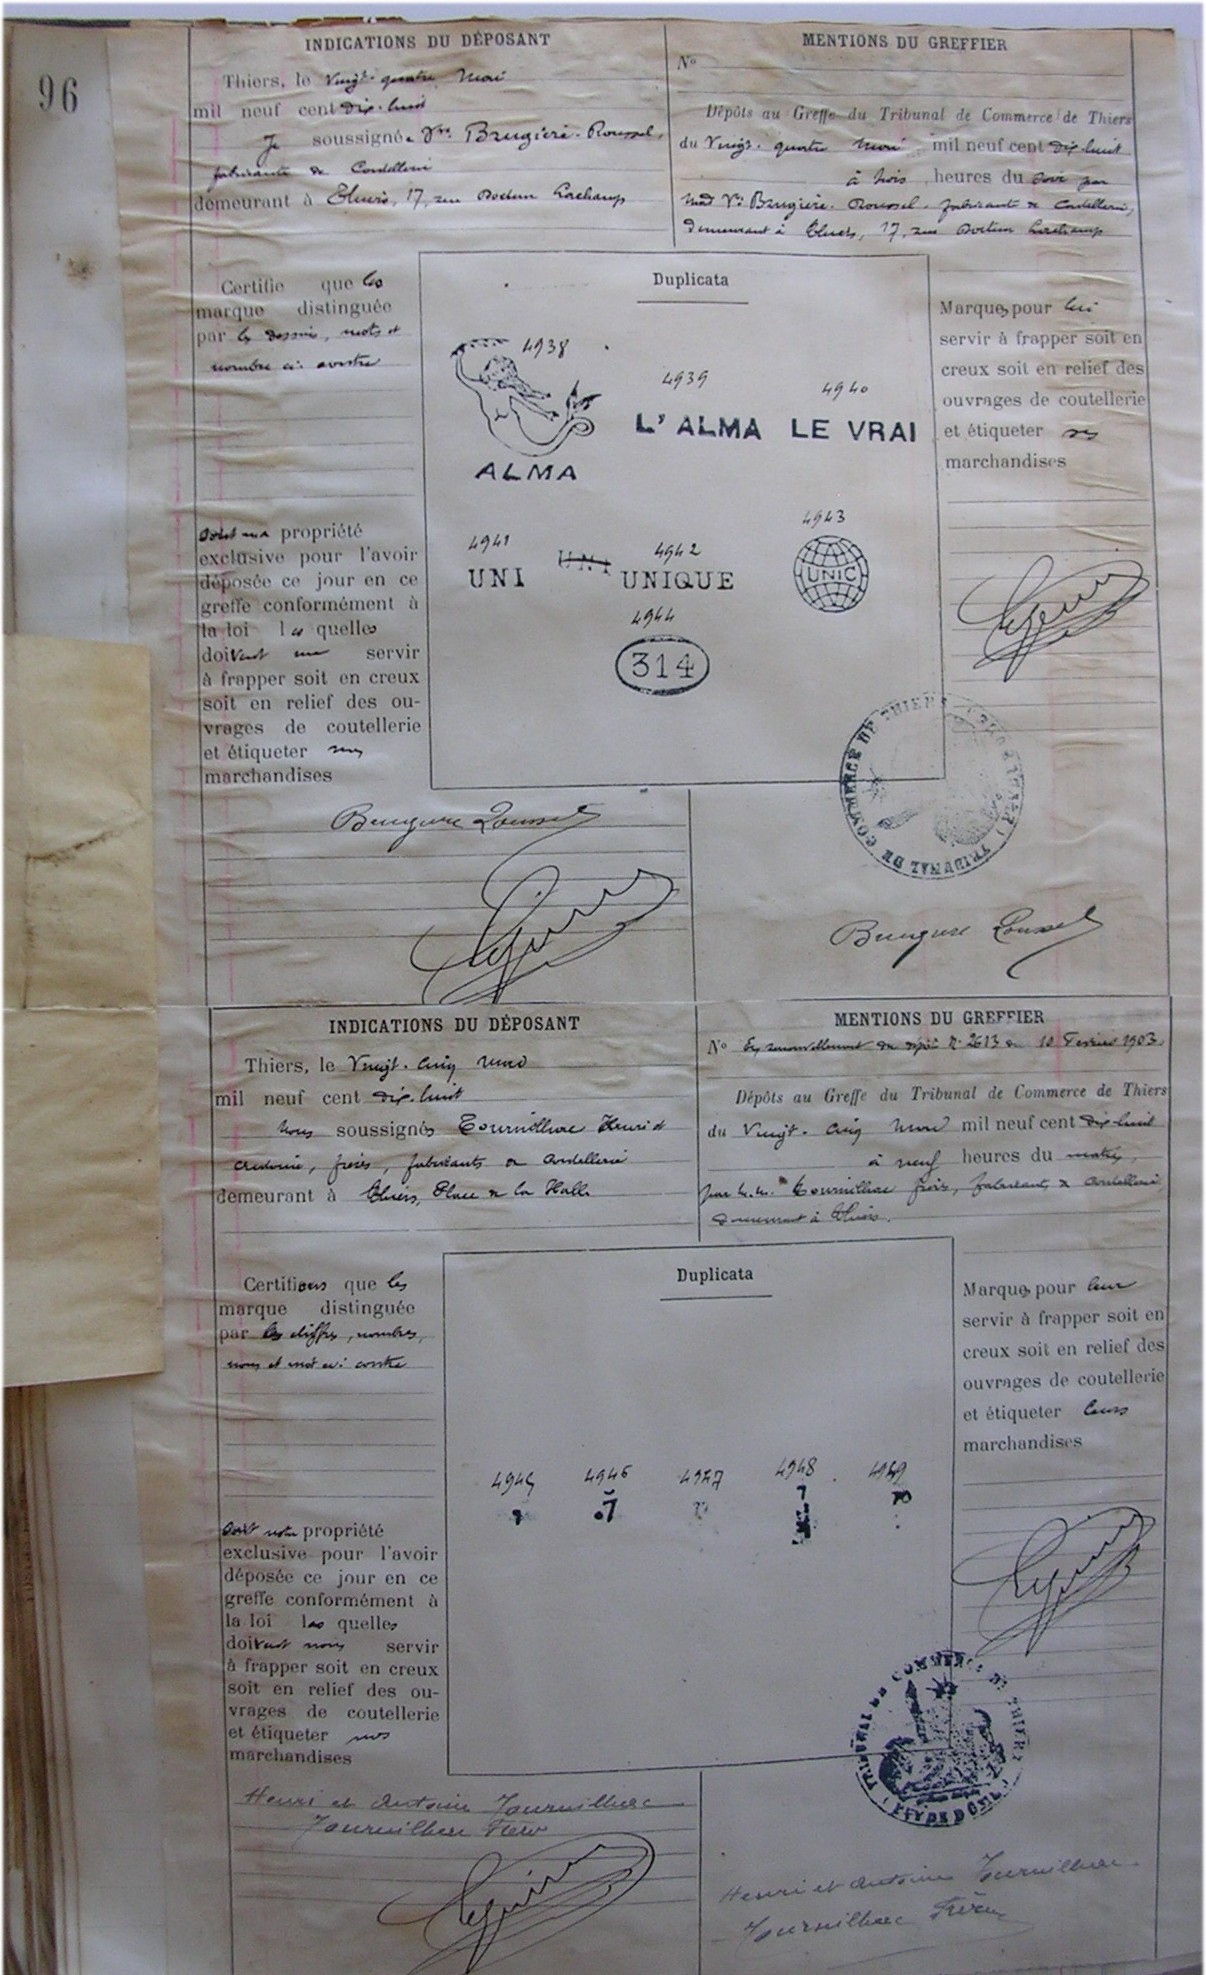 96
INDICATIONS DU DÉPOSANT
Thiers, le Vingt-quatre Mai
mil neuf cent dix-huit
Je soussignée Vve Brugière-Roussel,
fabricante de Coutellerie
demeurant à Thiers, 17, rue Docteur Lachamp
MENTIONS DU GREFFIER
No
Dépôts au Greffe du Tribunal de Commerce de Thiers
du Vingt-quatre Mai mil neuf cent dix-huit
à trois heures du soir par
Mad Vve Brugière-Roussel, fabricante de Coutellerie,
demeurant à Thiers, 17, rue Docteur Lachamp
Certifie que les
marque distinguée
par les dessins, mots et
nombre ci-contre
sont ma propriété
exclusive pour l'avoir
déposée ce jour en ce
greffe conformément à
la loi les quelles
doivent me servir
à frapper soit en creux
soit en relief des ou-
vrages de coutellerie
et étiqueter mes
marchandises
Duplicata
4938
ALMA
4939
L'ALMA
4940
LE VRAI
4941
UNI
UNI
4942
UNIQUE
4943
UNIC
4944
314
Marques pour lui
servir à frapper soit en
creux soit en relief des
ouvrages de coutellerie
et étiqueter ses
marchandises
TRIBUNAL DE COMMERCE DE THIERS
Brugière Roussel
Brugière Roussel
INDICATIONS DU DÉPOSANT
Thiers, le Vingt-cinq Mai
mil neuf cent dix-huit
Nous soussignés Tournilhac Henri et
frères, fabricants de Coutellerie
demeurant à Thiers, Place de la Halle
MENTIONS DU GREFFIER
No En renouvellement du dépôt No 2613 du 10 Février 1903.
Dépôts au Greffe du Tribunal de Commerce de Thiers
du Vingt-cinq Mai mil neuf cent dix-huit
à neuf heures du matin,
par M.M. Tournilhac frères, fabricants de Coutellerie,
demeurant à Thiers.
Certifions que les
marque distinguée
par les chiffres, nombres,
noms et mot ci-contre
sont notre propriété
exclusive pour l'avoir
déposée ce jour en ce
greffe conformément à
la loi les quelles
doivent nous servir
à frapper soit en creux
soit en relief des ou-
vrages de coutellerie
et étiqueter nos
marchandises
Duplicata
4945 4946 4947 4948 4949
Marques pour leur
servir à frapper soit en
creux soit en relief des
ouvrages de coutellerie
et étiqueter leurs
marchandises
TRIBUNAL DE COMMERCE DE THIERS
(PUY DE DÔME)
Henri et Antoine Tournilhac
Tournilhac Frères
Henri et Antoine Tournilhac
Tournilhac Frères